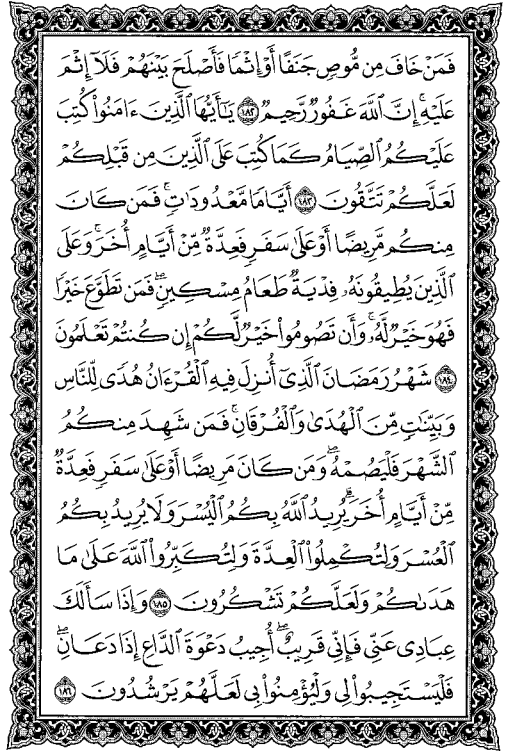 فَمَنْ خَافَ مِن مُّوصٍ جَنَفًا أَوْ إِثْمًا فَأَصْلَحَ بَيْنَهُمْ فَلَآ إِثْمَ
عَلَيْهِ ۚ إِنَّ ٱللَّهَ غَفُورٌ رَّحِيمٌ ۝١٨٢ يَـٰٓأَيُّهَا ٱلَّذِينَ ءَامَنُوا۟ كُتِبَ
عَلَيْكُمُ ٱلصِّيَامُ كَمَا كُتِبَ عَلَى ٱلَّذِينَ مِن قَبْلِكُمْ
لَعَلَّكُمْ تَتَّقُونَ ۝١٨٣ أَيَّامًا مَّعْدُودَٰتٍ ۚ فَمَن كَانَ
مِنكُم مَّرِيضًا أَوْ عَلَىٰ سَفَرٍ فَعِدَّةٌ مِّنْ أَيَّامٍ أُخَرَ ۚ وَعَلَى
ٱلَّذِينَ يُطِيقُونَهُۥ فِدْيَةٌ طَعَامُ مِسْكِينٍ ۖ فَمَن تَطَوَّعَ خَيْرًا
فَهُوَ خَيْرٌ لَّهُۥ ۚ وَأَن تَصُومُوا۟ خَيْرٌ لَّكُمْ إِن كُنتُمْ تَعْلَمُونَ
۝١٨٤ شَهْرُ رَمَضَانَ ٱلَّذِىٓ أُنزِلَ فِيهِ ٱلْقُرْءَانُ هُدًى لِّلنَّاسِ
وَبَيِّنَـٰتٍ مِّنَ ٱلْهُدَىٰ وَٱلْفُرْقَانِ ۚ فَمَن شَهِدَ مِنكُمُ
ٱلشَّهْرَ فَلْيَصُمْهُ ۖ وَمَن كَانَ مَرِيضًا أَوْ عَلَىٰ سَفَرٍ فَعِدَّةٌ
مِّنْ أَيَّامٍ أُخَرَ ۗ يُرِيدُ ٱللَّهُ بِكُمُ ٱلْيُسْرَ وَلَا يُرِيدُ بِكُمُ
ٱلْعُسْرَ وَلِتُكْمِلُوا۟ ٱلْعِدَّةَ وَلِتُكَبِّرُوا۟ ٱللَّهَ عَلَىٰ مَا
هَدَىٰكُمْ وَلَعَلَّكُمْ تَشْكُرُونَ ۝١٨٥ وَإِذَا سَأَلَكَ
عِبَادِى عَنِّى فَإِنِّى قَرِيبٌ ۖ أُجِيبُ دَعْوَةَ ٱلدَّاعِ إِذَا دَعَانِ ۖ
فَلْيَسْتَجِيبُوا۟ لِى وَلْيُؤْمِنُوا۟ بِى لَعَلَّهُمْ يَرْشُدُونَ ۝١٨٦